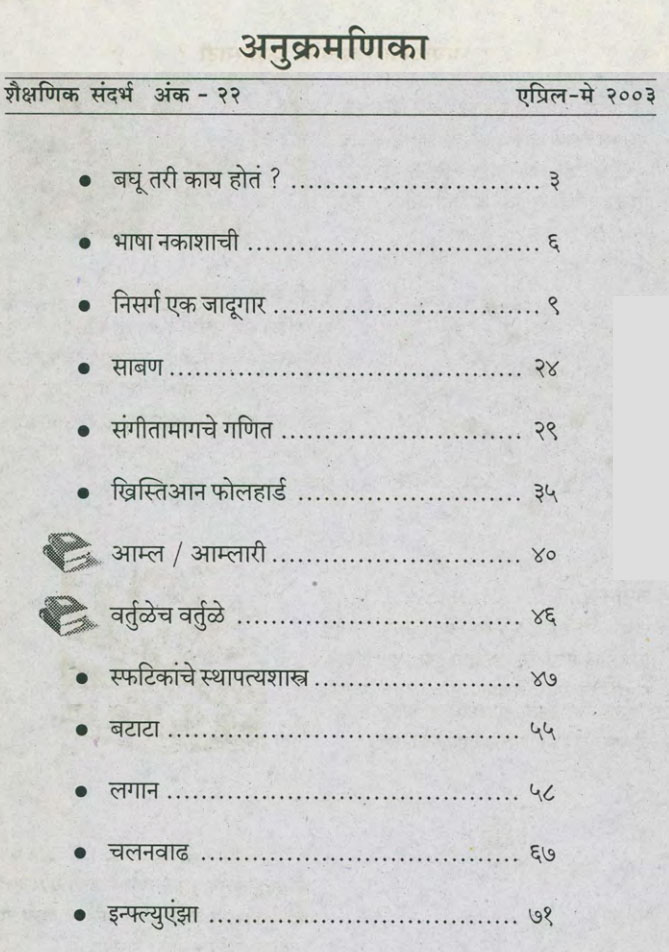 अनुक्रमणिका
शैक्षणिक संदर्भ अंक - २२ एप्रिल-मे २००३
बघू तरी काय होतं ? ................................ ३
भाषा नकाशाची ..................................... ६
निसर्ग एक जादूगार ................................. ९
साबण ............................................. २४
संगीतामागचे गणित ................................ २९
ख्रिस्तिआन फोलहार्ड .............................. ३५
आम्ल / आम्लारी .................................. ४०
वर्तुळेच वर्तुळे ...................................... ४६
स्फटिकांचे स्थापत्यशास्त्र ........................... ४७
बटाटा ............................................. ५५
लगान ............................................. ५८
चलनवाढ ......................................... ६७
इन्फ्ल्युएंझा ........................................ ७१